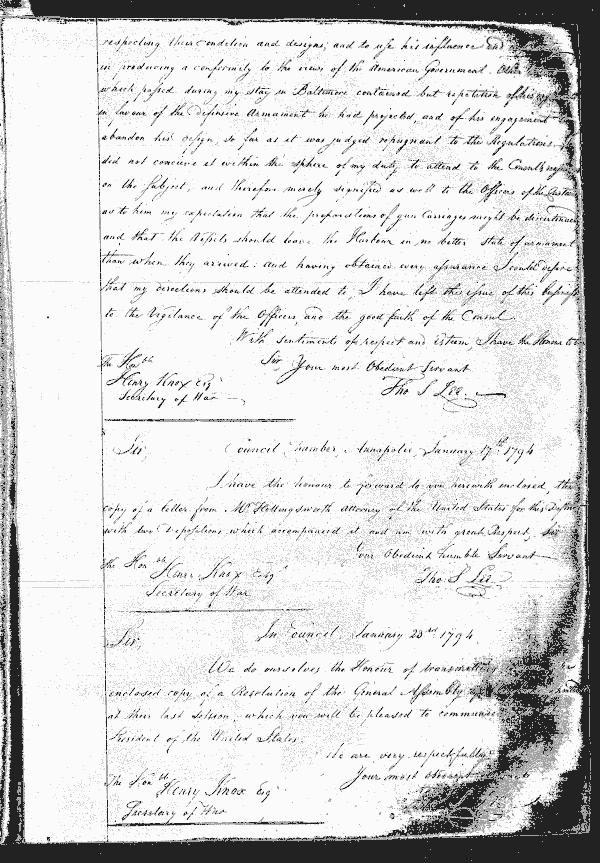 respecting their condition and designs; and to use his influence and
in producing a conformity to the views of the American Government. Other
which passed during my stay in Baltimore contained but repetition of his
in favour of the Defensive Armament he had projected, and of his engagement to
abandon his design, so far as it was judged repugnant to the Regulations. I
did not conceive it within the sphere of my duty to attend to the Consul's
on the Subject, and therefore merely signified as well to the Officers of the Customs
as to him my expectation that the preparations of gun Carriages might be discontinued
and that the Vessels should leave the Harbour in no better state of armament
than when they arrived: and having obtained every assurance I could desire
that my directions should be attended to, I have left the issue of this Business
to the Vigilance of the Officers, and the good faith of the Consul.
With sentiments of respect and Esteem, I have the Honour to be
Sir, Your most Obedient Servant
The Honble
Henry Knox Esqr
Tho S Lee.
Secretary of War
Sir, Council Chamber, Annapolis, January 17th 1794
I have the honour to forward to you herewith enclosed, the
copy of a letter from Mr Hollingsworth attorney of the United States for this District
with two Depositions which accompanied it and am with great Respect, Sir
Your Obedient humble Servant
The Honble
Henry Knox Esqr
Tho S Lee
Secretary of War
Sir, In Council, January 23rd 1794
We do ourselves the Honour of transmitting
enclosed copy of a Resolution of the General Assembly
at their last session, which you will be pleased to communicate
President of the United States.
We are very respectfully
Your most obedient
The Honble
Henry Knox Esqr
Secretary of War